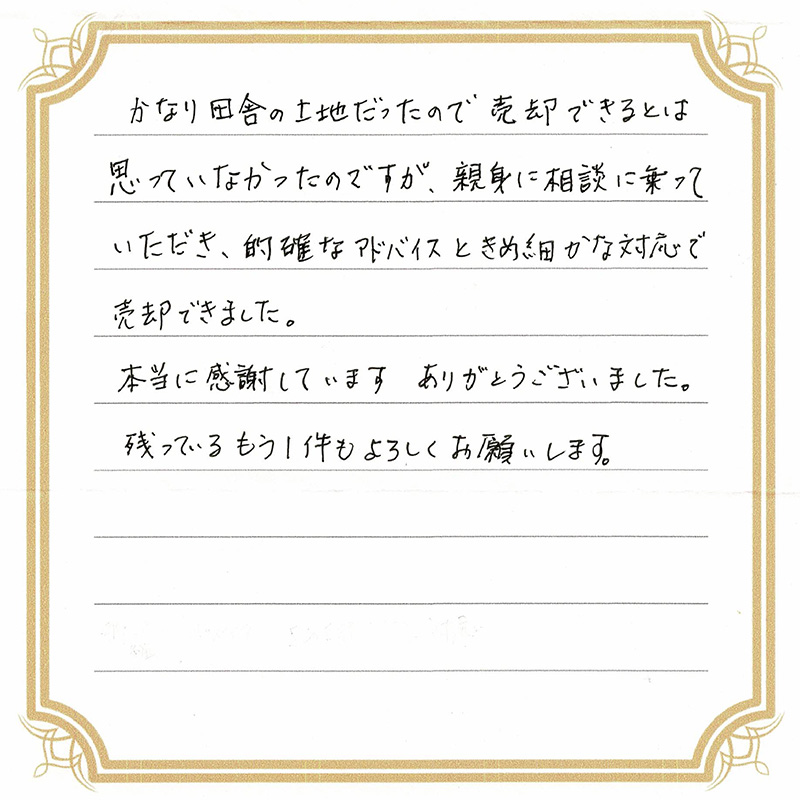 かなり田舎の土地だったので売却できるとは
思っていなかったのですが、親身に相談に乗って
いただき、的確なアドバイスときめ細かな対応で
売却できました。
本当に感謝しています　ありがとうございました。
残っているもう1件もよろしくお願いします。